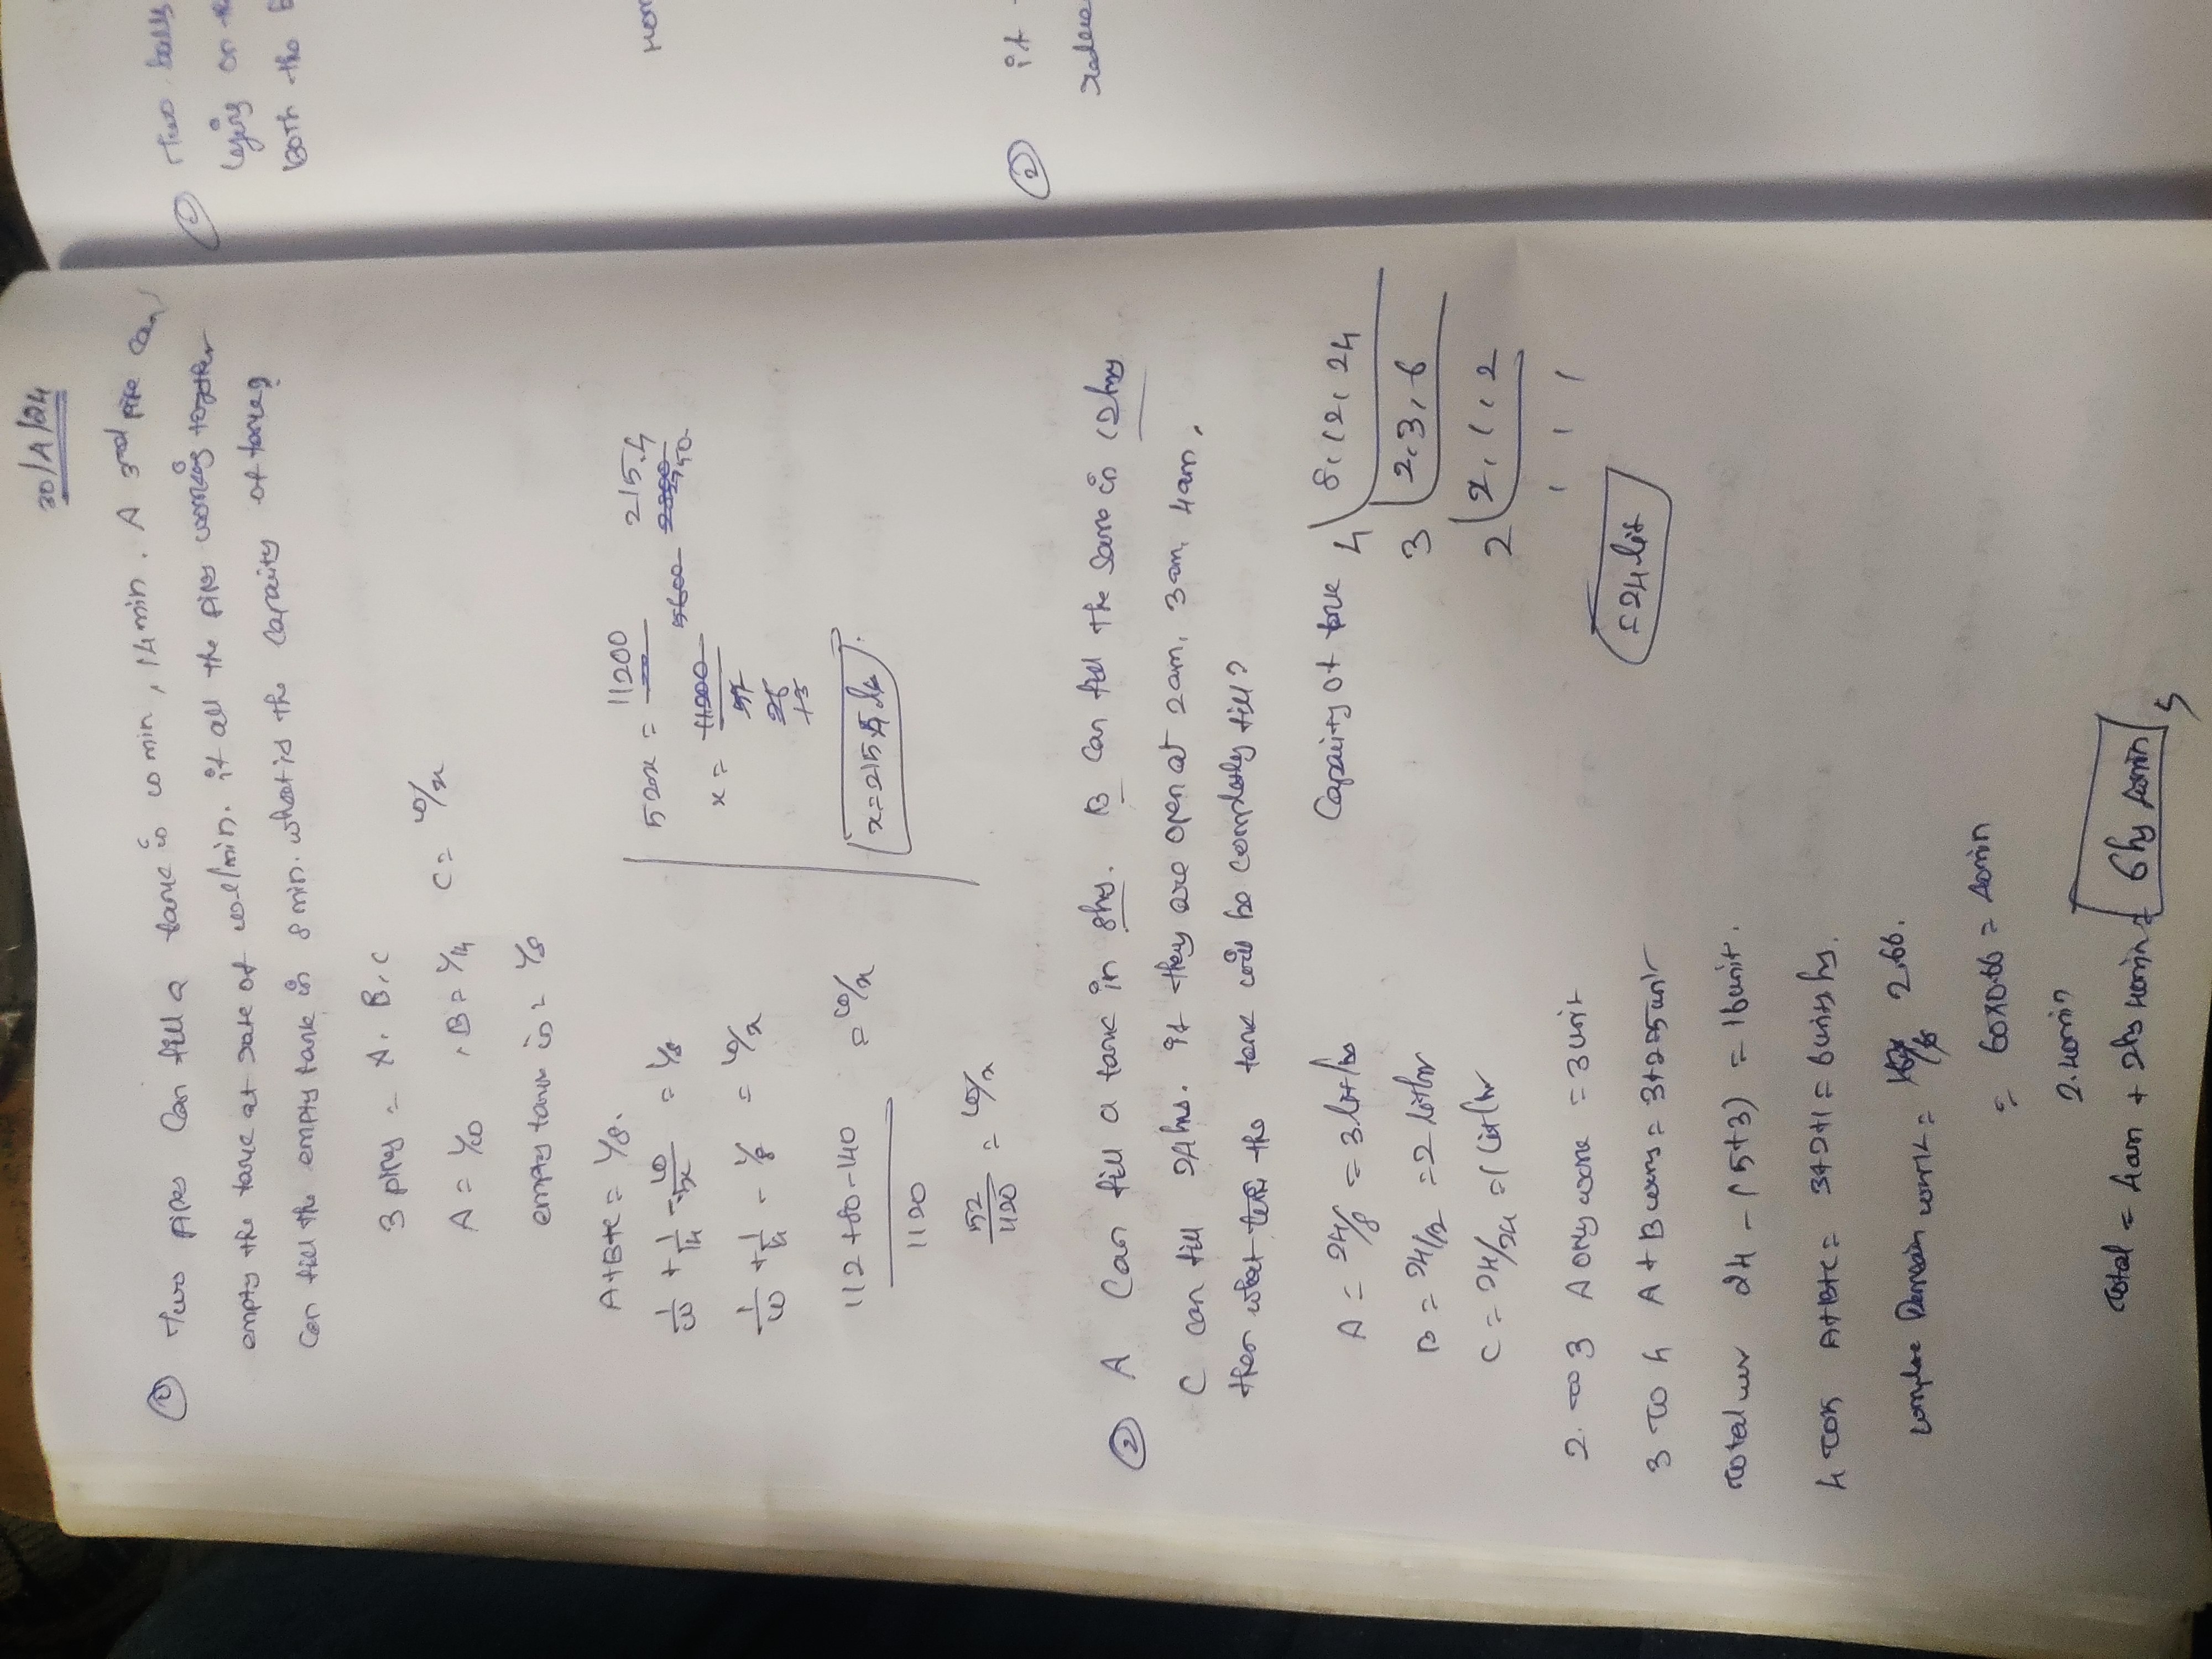 20/4/24
① Two pipes Can fill a tank in 10 min, 14 min. A 3rd pipe Can
empty the tank at rate of 10 l/min. if all the pipes working together
Can fill the empty tank in 8 min. what is the Capacity of tank?
3 pipes = A, B, C
A = 1/10, B = 1/4 C = 10/x
empty tank in = 1/8
A+B+C = 1/8.
1/10 + 1/14 - 10/x = 1/8
1/10 + 1/14 - 1/8 = 10/x
112 + 80 - 140
1120 = 10/x
52/1120 = 10/x
52x = 11200
x = 11200
52
26
13
5600
215.4
x = 215.
② A Can fill a tank in 8hrs. B can fill the same in 12hrs
C can fill 24hrs. If they are open at 2am, 3am, 4am,
then what the tank will be completely fill?
A = 24/8 = 3 lit/hr
B = 24/12 = 2 lit/hr
C = 24/24 = 1 lit/hr
Capacity of tank
4 8, 12, 24
3 2, 3, 6
2 2, 1, 2
1 1 1
= 24 lit
2 to 3 A only work = 3 unit
3 to 4 A + B work = 3+2=5 unit
24 - (5+3) = 16 unit.
A+B+C = 3+2+1 = 6
Remain work = 2.66.
= 60x0.66 = 40min
2.40min
Total = 4am + 2hr 40min = 6hr 40min
① Two balls
lying on
both the B
② it
Hom